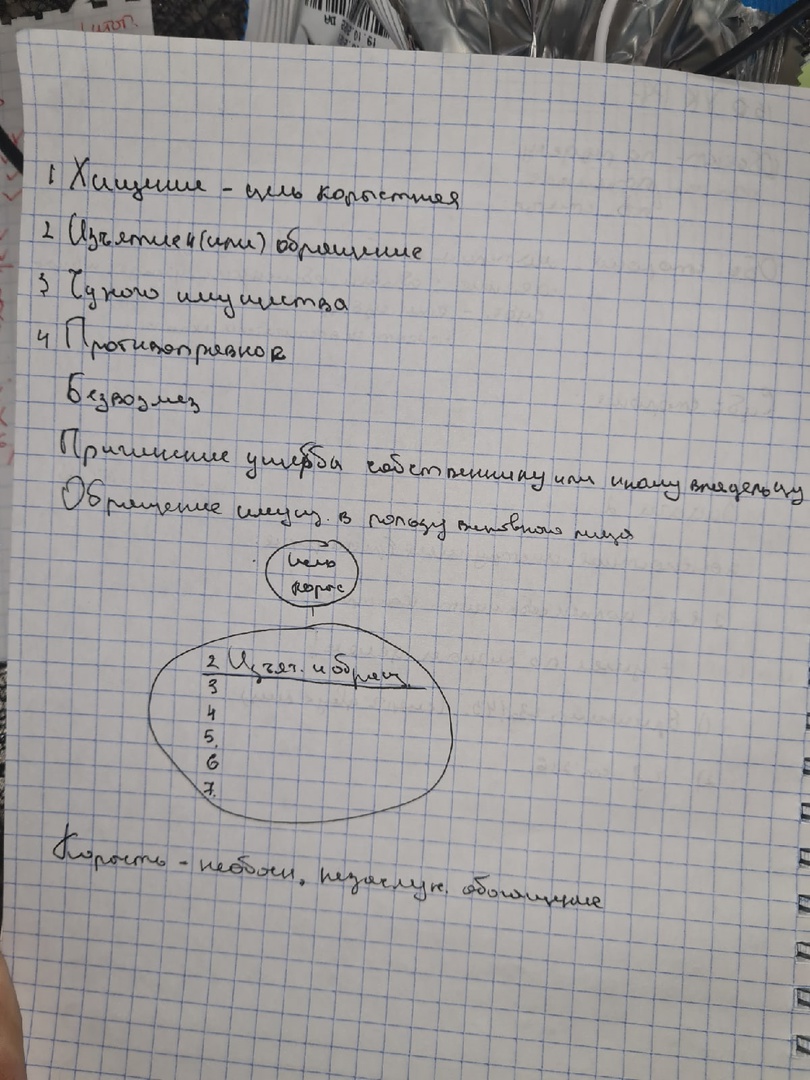 1 Хищение - цель корыстная
2 Изъятие и (или) обращение
3 Чужого имущества
4 Противоправное
Безвозмез
Причинение ущерба собственнику или иному владельцу
Обращение имущ. в пользу виновного лица
цель
корыс
2 Изъят. и обращ.
3
4
5.
6
7.
Корысть - необосн. незаслуж. обогащение